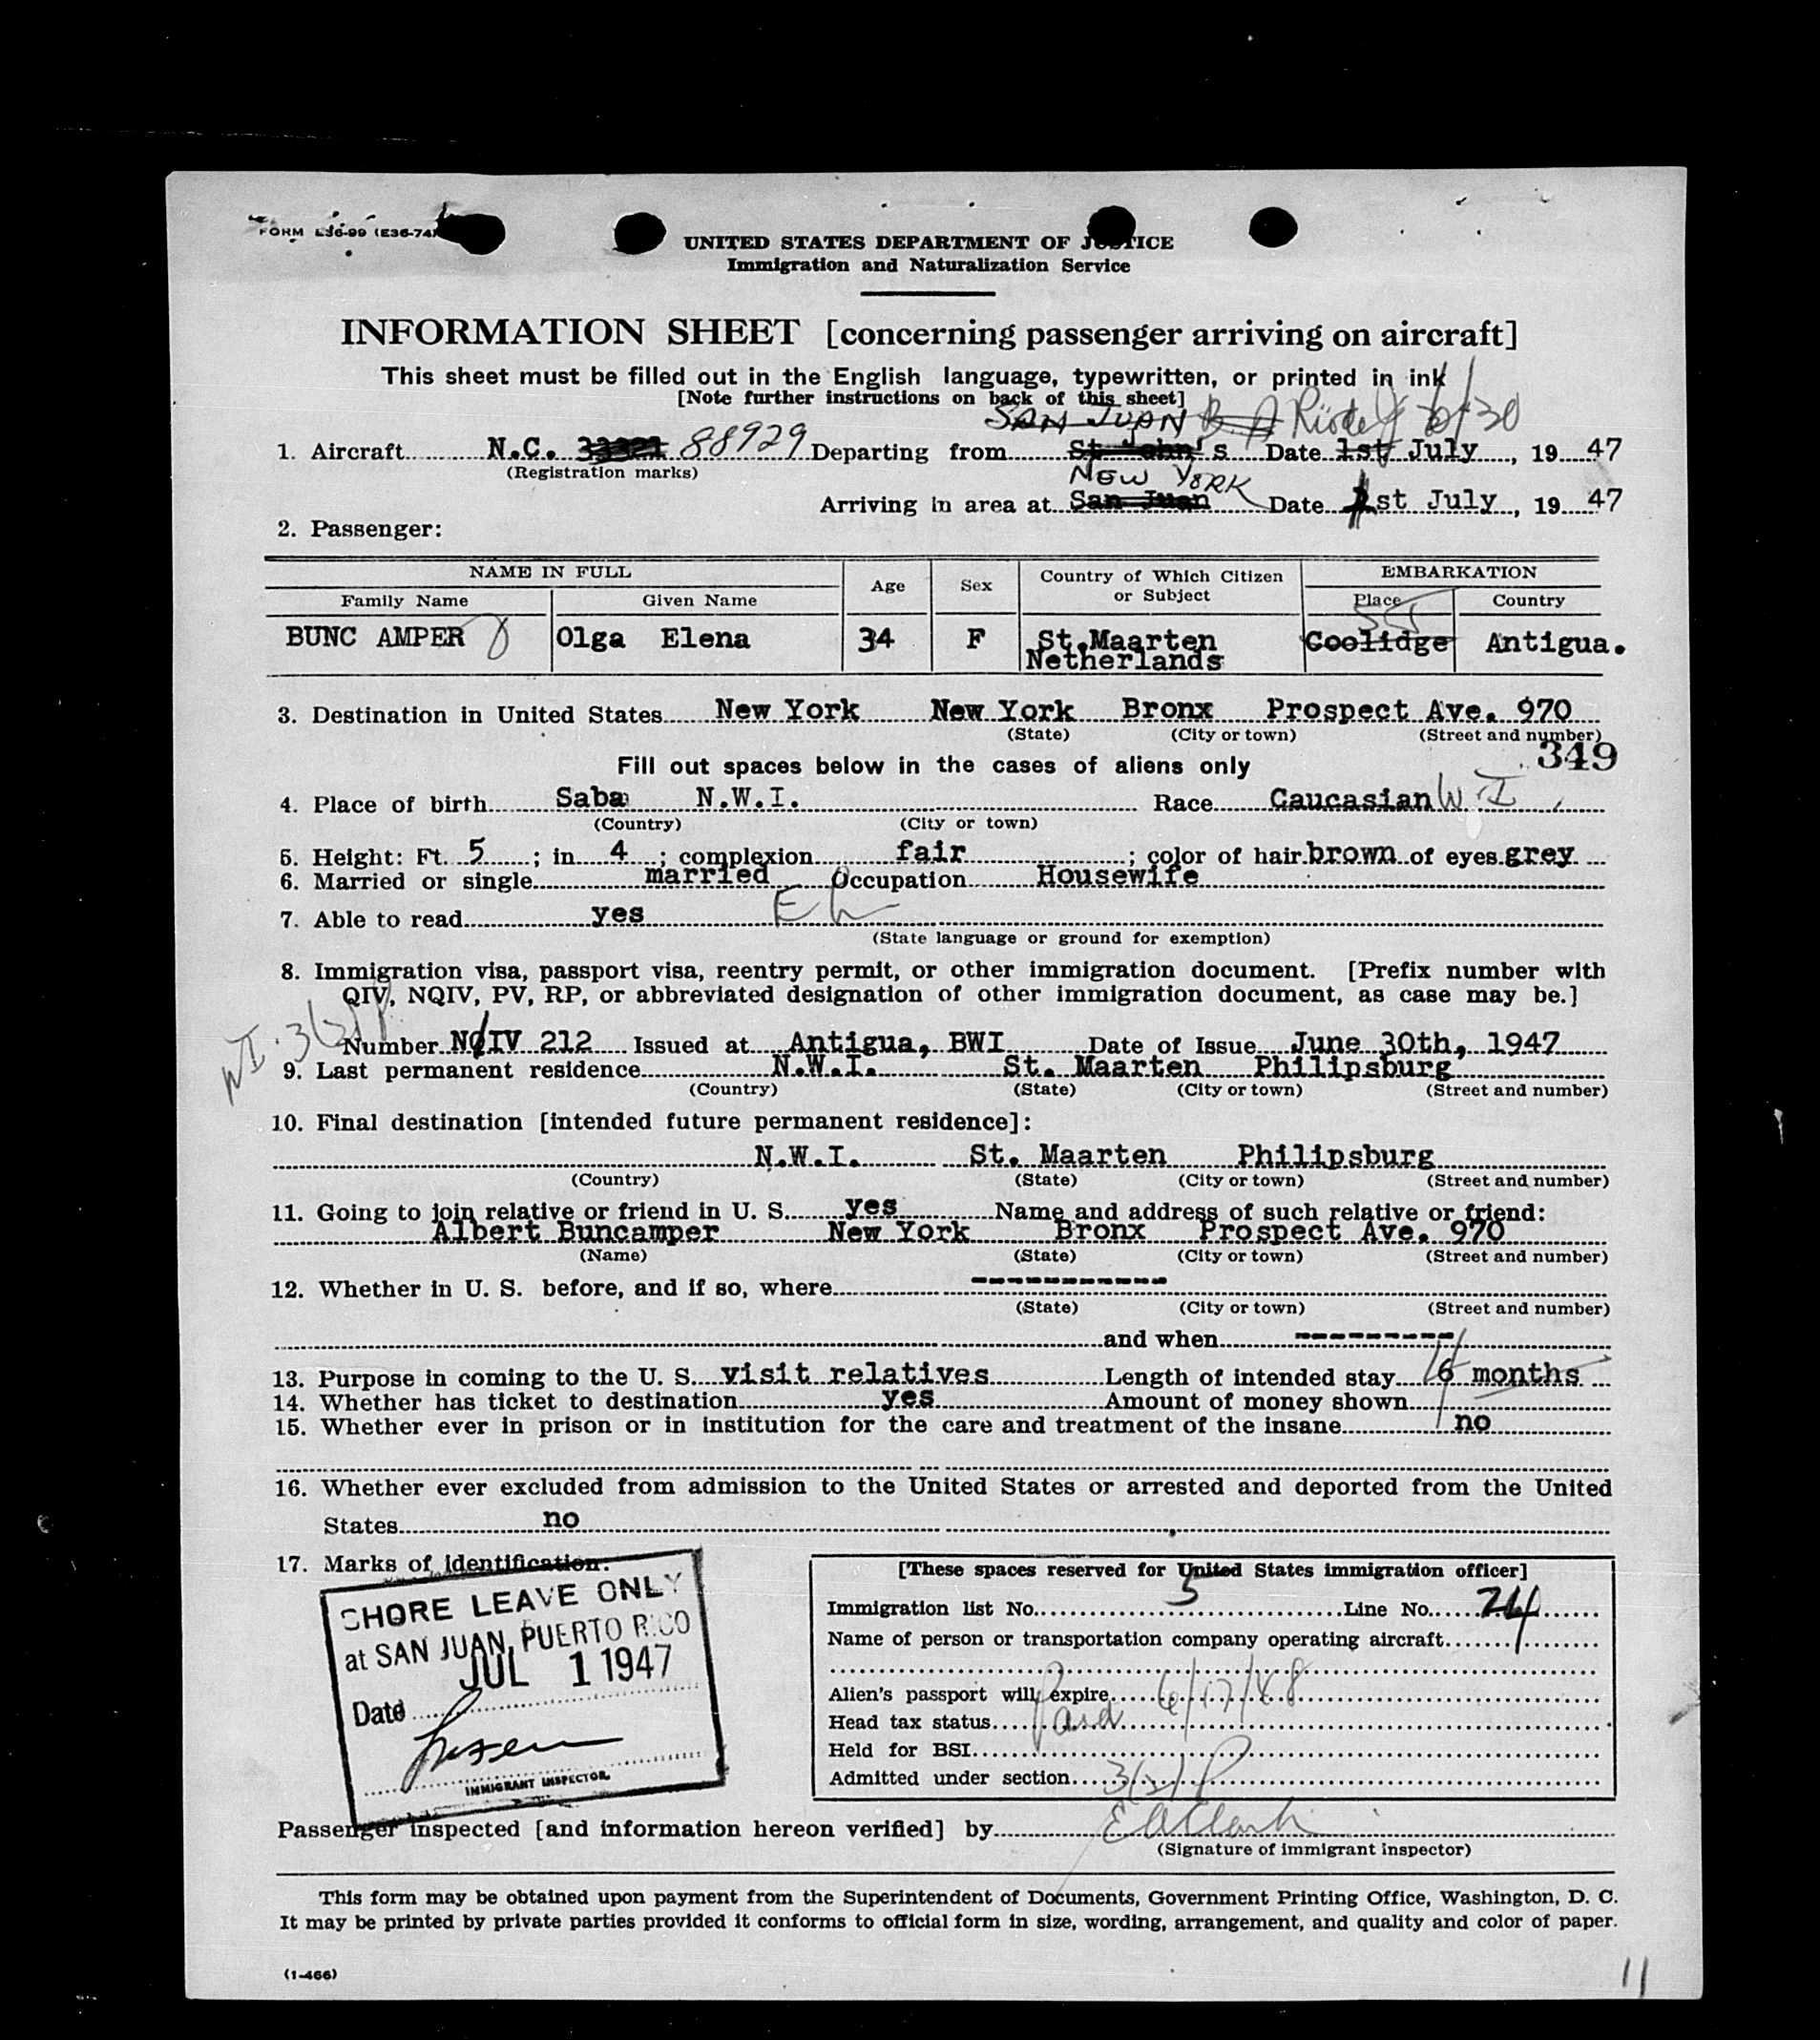 FORM I-36-99 (E36-74)
UNITED STATES DEPARTMENT OF JUSTICE
Immigration and Naturalization Service
INFORMATION SHEET [concerning passenger arriving on aircraft]
This sheet must be filled out in the English language, typewritten, or printed in ink
[Note further instructions on back of this sheet]
SAN JUAN
1. Aircraft N.C. 33321 88929 Departing from St John's Date 1st July, 19 47
(Registration marks)
NEW YORK
Arriving in area at San Juan Date 1st July, 19 47
2. Passenger:
NAME IN FULL Age Sex Country of Which Citizen or Subject EMBARKATION
Family Name Given Name Place Country
BUNC AMPER Olga Elena 34 F St.Maarten Coolidge Antigua.
Netherlands
3. Destination in United States New York New York Bronx Prospect Ave. 970
(State) (City or town) (Street and number)
349
Fill out spaces below in the cases of aliens only
4. Place of birth Saba N.W.I. Race Caucasian W.I
(Country) (City or town)
5. Height: Ft. 5; in 4; complexion fair; color of hair brown of eyes grey
6. Married or single married Occupation Housewife
7. Able to read yes
(State language or ground for exemption)
8. Immigration visa, passport visa, reentry permit, or other immigration document. [Prefix number with
QIV, NQIV, PV, RP, or abbreviated designation of other immigration document, as case may be.]
WI. 3(2)P
Number NQIV 212 Issued at Antigua, BWI Date of Issue June 30th, 1947
9. Last permanent residence N.W.I. St. Maarten Philipsburg
(Country) (State) (City or town) (Street and number)
10. Final destination [intended future permanent residence]:
N.W.I. St. Maarten Philipsburg
(Country) (State) (City or town) (Street and number)
11. Going to join relative or friend in U. S. yes Name and address of such relative or friend:
Albert Buncamper New York Bronx Prospect Ave. 970
(Name) (State) (City or town) (Street and number)
12. Whether in U. S. before, and if so, where ------------
(State) (City or town) (Street and number)
and when ----------
13. Purpose in coming to the U. S. visit relatives Length of intended stay 6 months
14. Whether has ticket to destination yes Amount of money shown
15. Whether ever in prison or in institution for the care and treatment of the insane no
16. Whether ever excluded from admission to the United States or arrested and deported from the United
States no
17. Marks of identification:
SHORE LEAVE ONLY
at SAN JUAN, PUERTO RICO
JUL 1 1947
Date
IMMIGRANT INSPECTOR
[These spaces reserved for United States immigration officer]
Immigration list No. 5 Line No. 24
Name of person or transportation company operating aircraft
Alien's passport will expire 6/17/48
Head tax status Paid
Held for BSI
Admitted under section 3(2) P
Passenger inspected [and information hereon verified] by E A Clark
(Signature of immigrant inspector)
This form may be obtained upon payment from the Superintendent of Documents, Government Printing Office, Washington, D. C.
It may be printed by private parties provided it conforms to official form in size, wording, arrangement, and quality and color of paper.
(1-466)
11